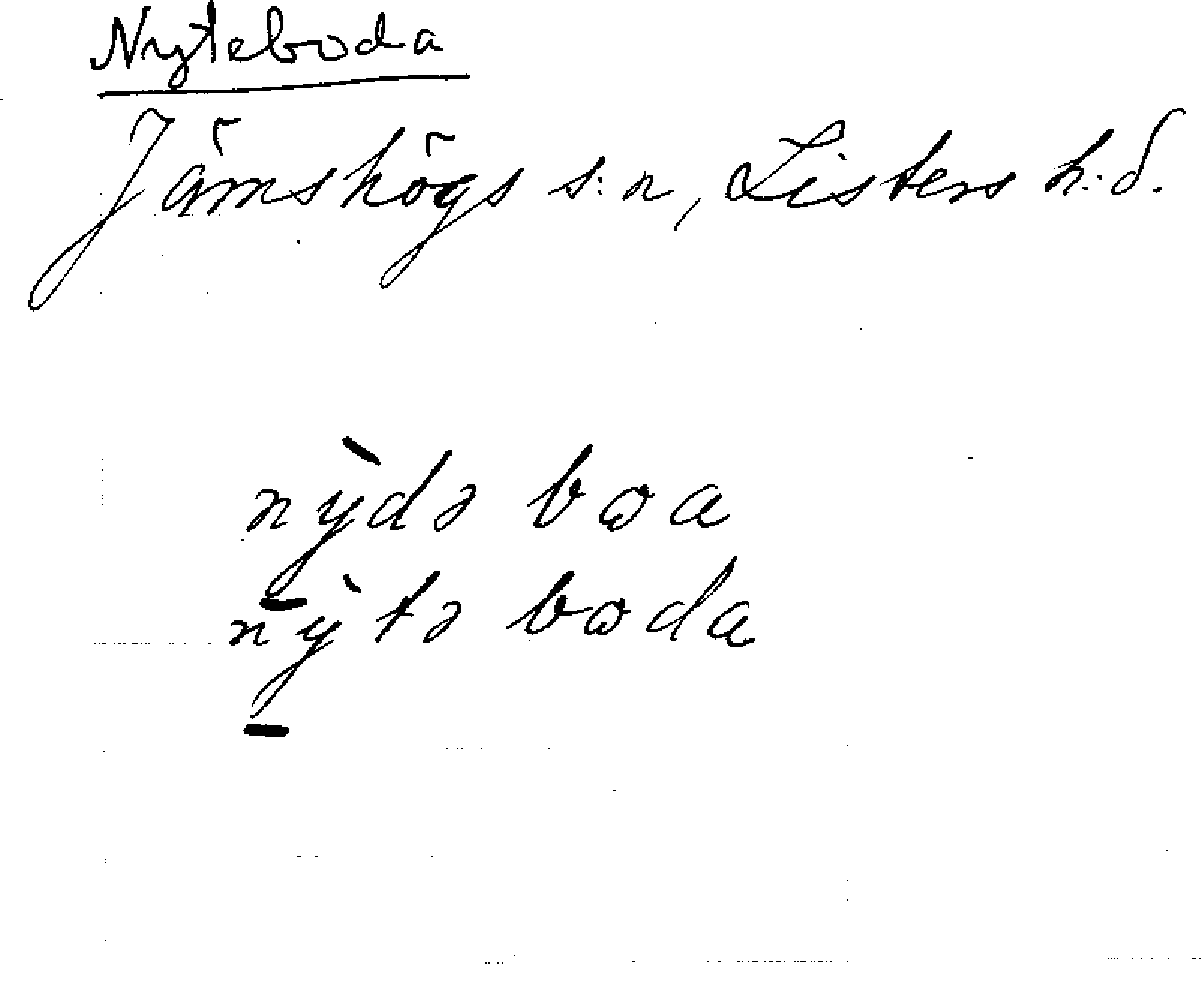 Nyteboda
Jämshögs s:n, Listers h:d.
nỳ̱də bωa
nỳ̱tə bωda